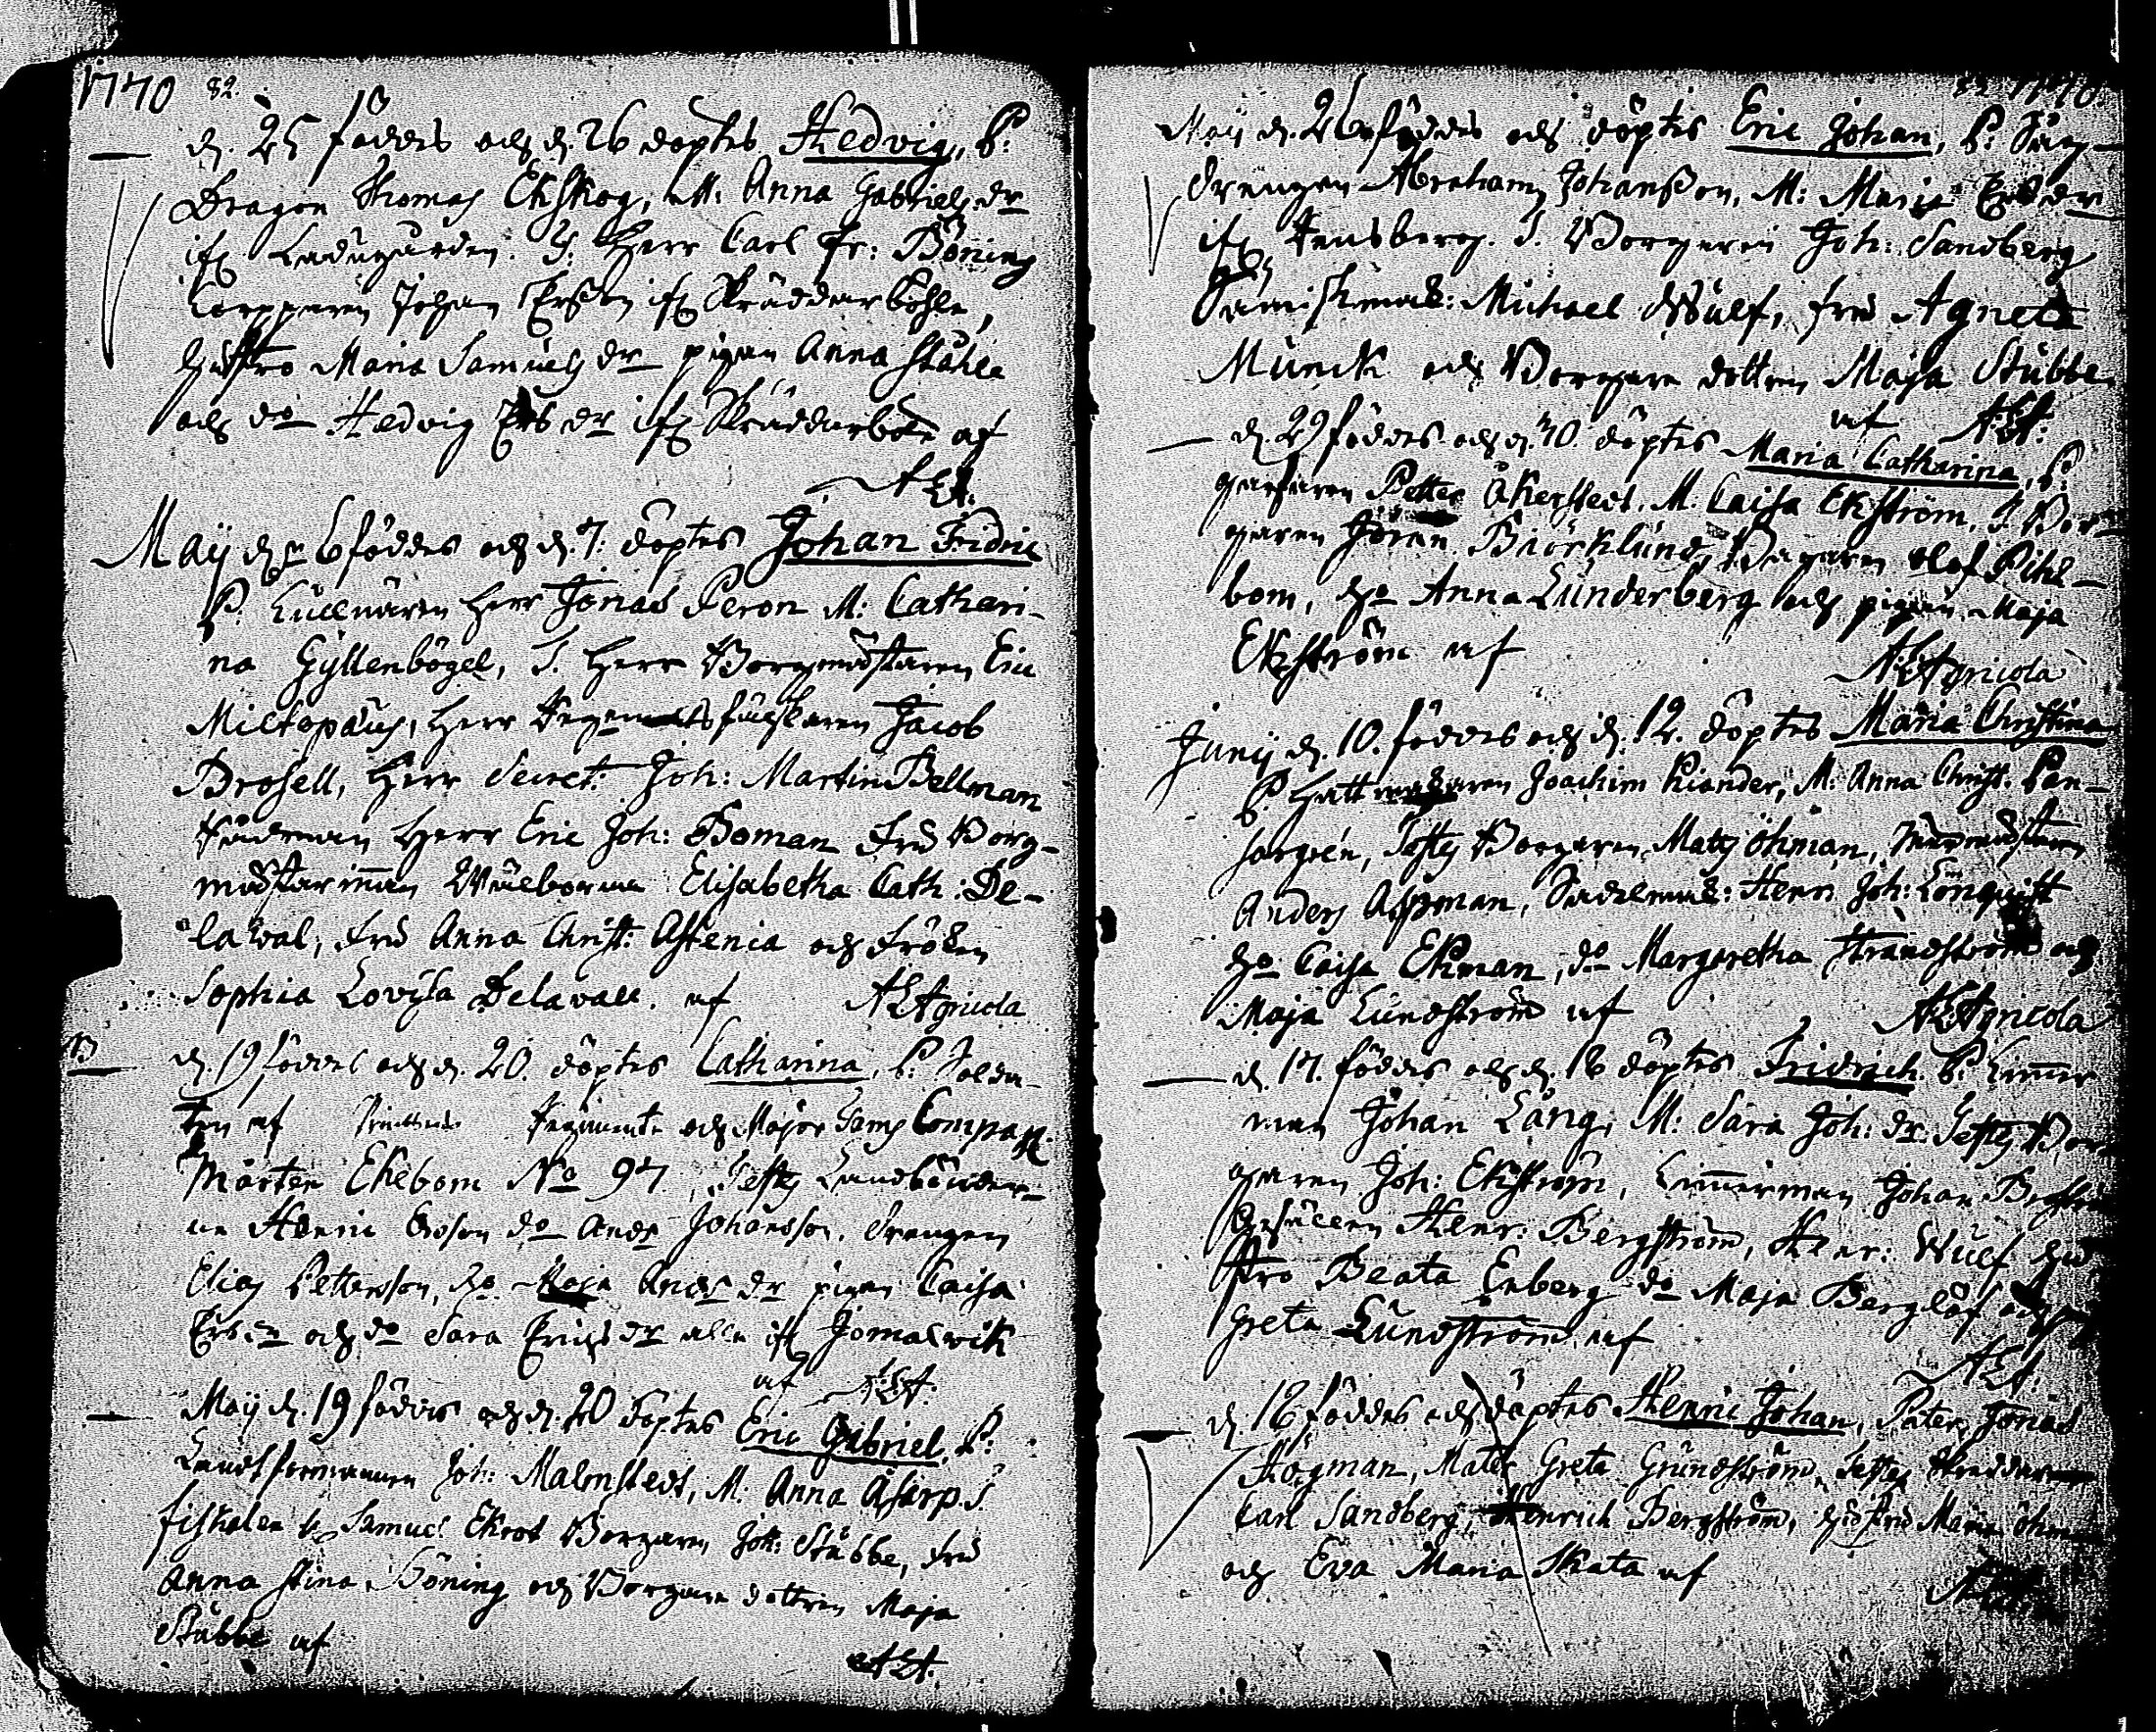 1770 82.
d. 25 föddes och d. 26 döptes Hedvig, P:
Dragon Thomas Ekskog, M: Anna Gabriels dr
ifr Ladugården. T: Herr Carl Fr: Böning
Torpparen Johan Ersson ifr Skräddarböhle,
hustro Maria Samuels dr pigan Anna Ståhle
och do Hedvig Ers dr ifr Skräddarböle af
AEA.
Maij d. 6 föddes och d. 7: döptes Johan Fridric
P: Herr Jonas Peron M: Cathari-
na Gyllenbögel, T. Herr Borgmästaren Eric
Miltopæus, Herr Jacob
Brosell, Herr Secret: Joh: Martin Bellman
Rådman Herr Eric Joh: Boman Fru Borg-
mästarinnan Wälborna Elisabetha Cath: De-
lawal, Fru Anna Christ: Astenia och Fröken
Sophia Lovisa Delavall. af AEAgricola
d. 19 föddes och d. 20. döptes Catharina, P: Solda-
ten af Regimente och Major Compa
Mårten Ekebom No 97, Testes Landbönder-
ne Henric do Anders Johansson, Drengen
Elias Petterson, Ho Maja Anders dr pigan Caisa
Ers dr och do Sara Erics dr alla ifr Jomalvik
af AEA.
Maij d. 19 föddes och d. 20 döptes Eric Gabriel, P:
Joh: Malmstedt, M: Anna T.
fiskalen Samuel Ekroot Borgaren Joh: Stubbe, Fru
Anna Stina Böning och Borgare dottren Maja
Stubbe af
AEA.
1770
Maij d. 26 föddes och döptes Eric Johan, P:
drengen Abraham Johansson, M: Maria Ers dr
ifr T. Borgaren Joh: Sandberg
Michael Wulf, fru Agneta
Munck och Borgare dottren Maja Stubbe
af AEA.
d. 29 föddes och d. 30. döptes Maria Catharina, P:
Petter Åkerstedt, M: Caisa Ekström, T. Bor-
garen Jöran Biörklund, Olof Pihl-
bom, Ho Anna Lunderberg och pigan Maja
Ekström af
AEAgricola
Junij d. 10. föddes och d. 12. döptes Maria Christina
P. Hattmakaren Joachim Kiander, M: Anna Christ.
Testes Borgaren Matts Öhman,
Anders Aspman, Sadelmak: Henr. Joh: Lönqvist
Ho Caisa Ekman, do Margaretha Strandström och
Maja Lundström af AEAgricola
d. 17. föddes och d. 18 döptes Fridrich. P. Timmer
man Johan Lång, M: Sara Joh: dr. Testes Bor
garen Joh: Ekström, Timmerman Johan
Gesällen Henr: Bergström, Henr: Wulf hu
stro Beata Enberg do Maja Berglöf och
Greta Lundström af
AEA.
d. 18 föddes och döptes Henric Johan, Pater Jonas
Högman, Mater Greta Grundström, Testes
Carl Sandberg, Henrich Bergström, hustru Maria
och Eva Maria Skata af